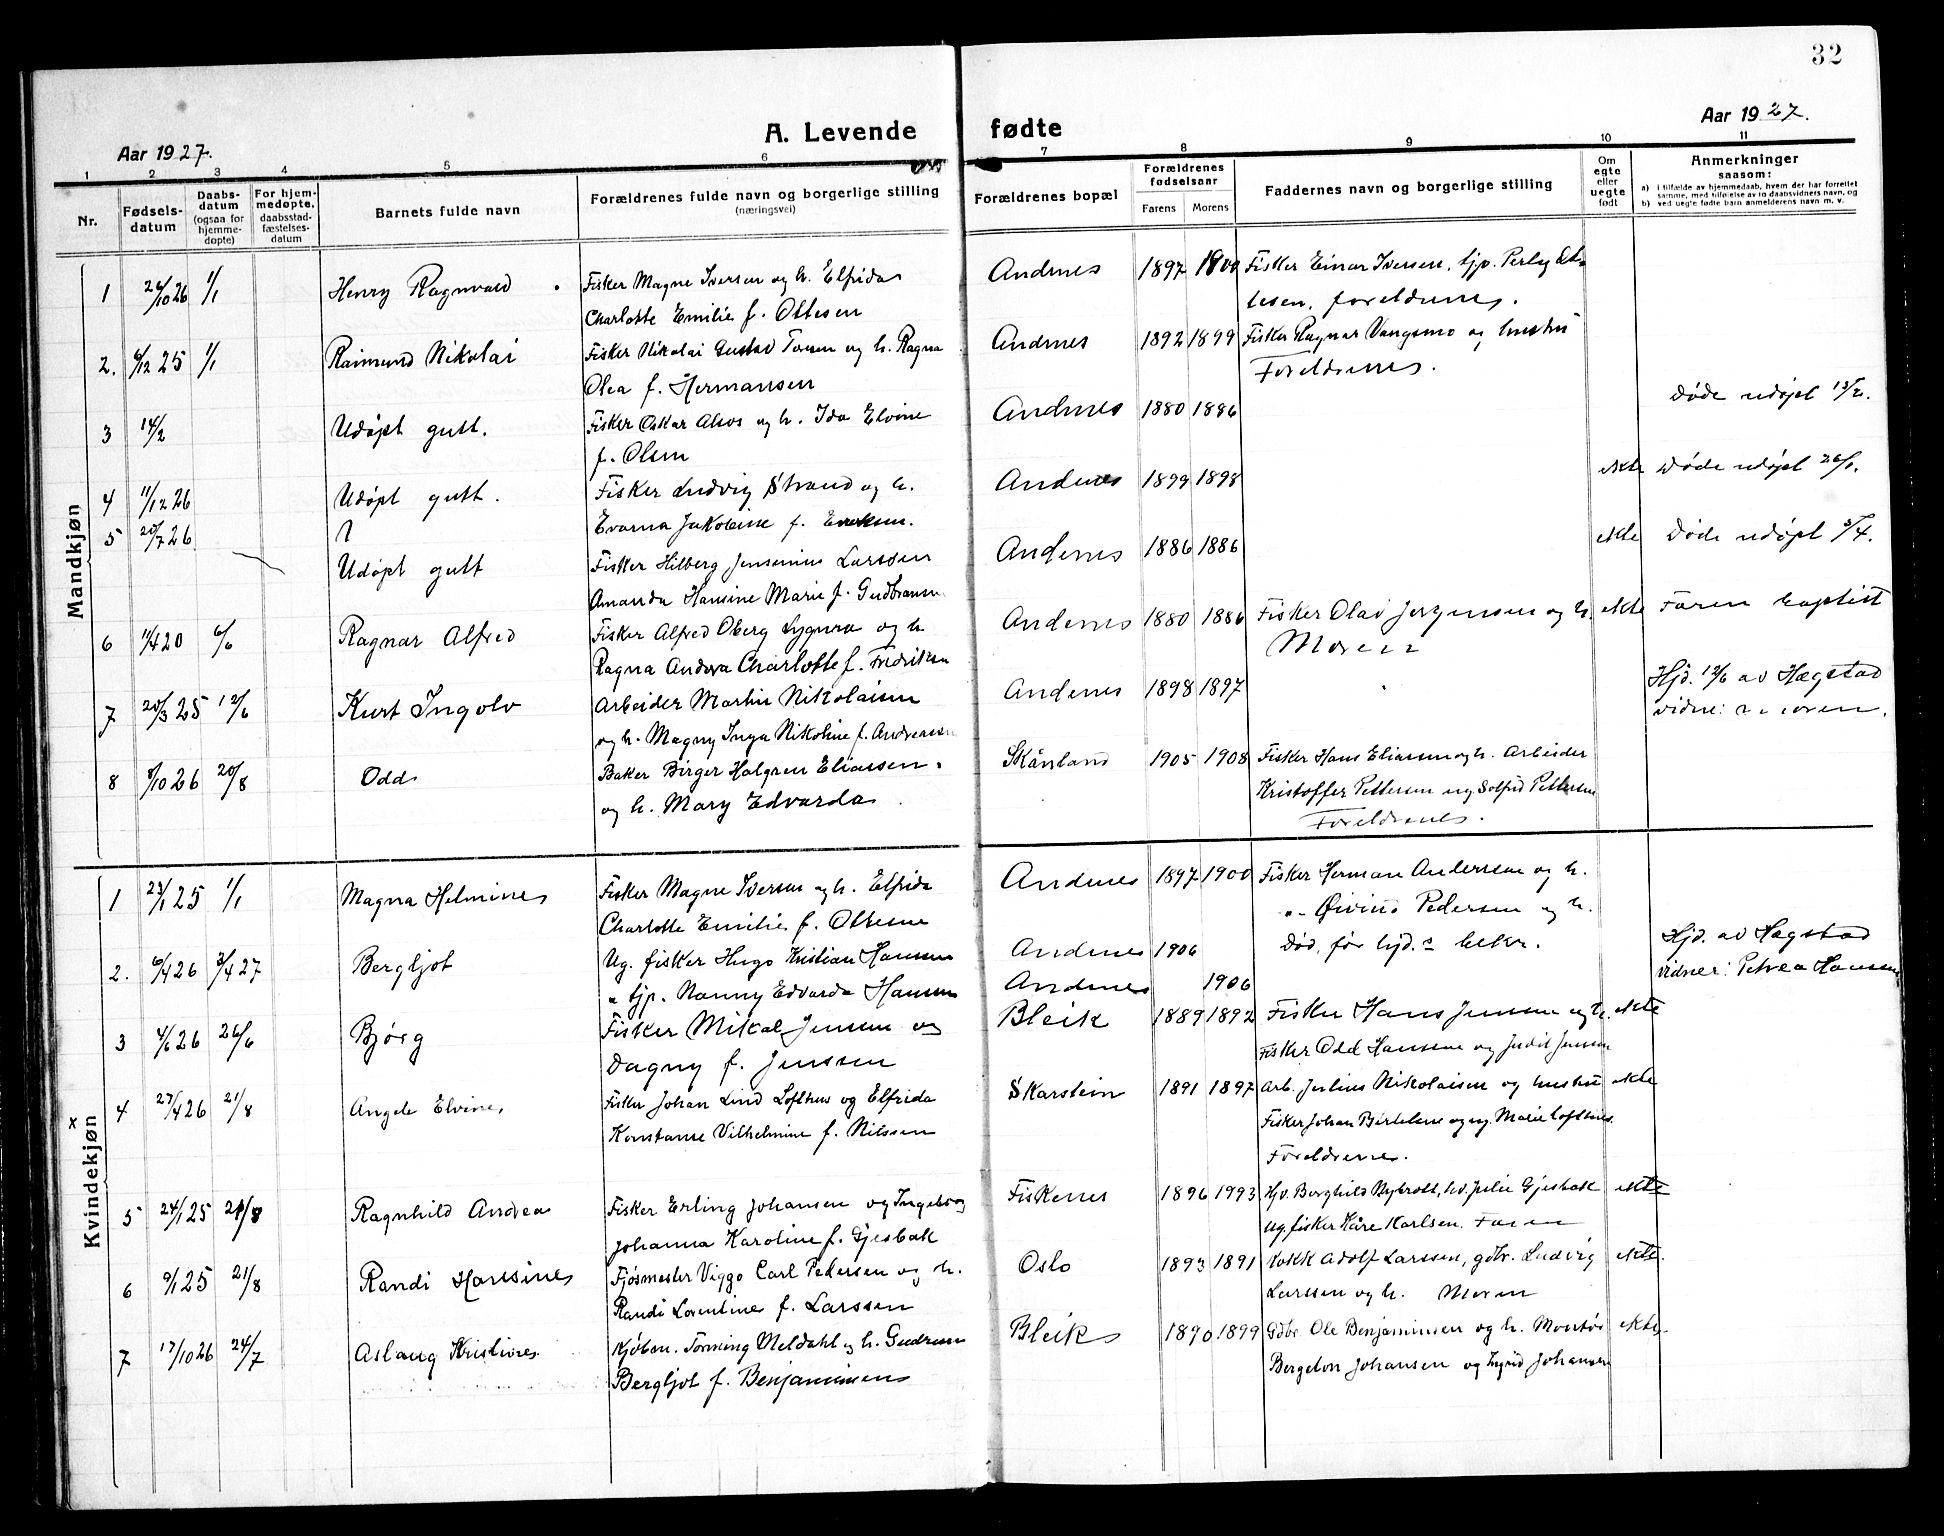 32
Aar 1927.
A. Levende fødte
Aar 1927.
1 2 3 4 5 6 7 8 9 10 11
Nr.
Fødsels-
datum
Daabs-
datum
(ogsaa for
hjemme-
døpte)
For hjem-
medøpte,
daabsstad-
fæstelses-
datum
Barnets fulde navn
Forældrenes fulde navn og borgerlige stilling
(næringsvei)
Forældrenes bopæl
Forældrenes
fødselsaar
Farens Morens
Faddernes navn og borgerlige stilling
Om
egte
eller
uegte
født
Anmerkninger
saasom:
a) i tilfælde av hjemmedaab, hvem der har forrettet
samme, med tilføielse av to daabsvidners navn, og
b) ved uegte fødte barn anmelderens navn m. v.
Mandkjøn
1 24/10 26 1/1 Henry Ragnvald Fisker Magne Iversen og h. Elfrida Andnes 1897 1900 Fisker Einar Iversen, tjp. Perly Ot-
Charlotte Emilie f. Ottesen tesen, foreldrene.
2. 6/12 25 1/1 Raimund Nikolai Fisker Nikolai Gustav Toresen og h. Ragna Andnes 1892 1899 Fisker Ragnar Vangsmo og hustru
Olea f. Hermansen Foreldrenes.
3 14/2 Udøpt gutt. Fisker Oskar Alsos og h. Ida Elvine Andnes 1880 1886 Døde udøpt 15/2.
f. Olsen
4 11/12 26 Udøpt gutt. Fisker Ludvig Strand og h. Andnes 1899 1898 ekte Døde udøpt 26/1.
5 20/7 26 Evarna Jakobine f. Eriksen.
Udøpt gutt Fisker Hilberg Jensenius Larssen Andenes 1886 1886 ekte Døde udøpt 5/4.
Amanda Hansine Marie f. Gudbransen
6 11/4 20 6/6 Ragnar Alfred Fisker Alfred Oberg Lygnra og h. Andenes 1880 1886 Fisker Olav Jørgensen og h. ekte Faren baptist
Ragna Andrea Charlotte f. Fredriksen Moren
7 20/3 25 12/6 Kurt Ingolv Arbeider Martin Nikolaisen Andenes 1898 1897 Hjd. 12/6 av Hægstad
og h. Magny Inga Nikoline f. Andreassen vidne: moren.
8 8/10 26 20/8 Odd Baker Birger Halgren Eliassen Skånland 1905 1908 Fisker Hans Eliassen og h. Arbeider
og h. Mary Edvarda Kristoffer Pettersen og Solfrid Pettersen
Foreldrenes.
Kvindekjøn
1 23/1 25 1/1 Magna Helmine Fisker Magne Iversen og h. Elfrida Andnes 1897 1900 Fisker Herman Andersen og h.
Charlotte Emilie f. Ottesen " Øivind Pedersen og h.
2. 6/4 26 3/4 27 Bergljot Ug. fisker Hugo Kristian Hansen Andnes 1906 Død, før hjd. Hjd. av Hægstad
tjp. Nanny Edvarda Hansen Andnes 1906 vidner: Petrea Hansen
3 4/6 26 26/6 Bjørg Fisker Mikal Jensen og Bleik 1889 1892 Fisker Hans Jensen og h. ekte
Dagny f. Jenssen Fisker Odd Hanssen og Judit Jensen
x
4 27/4 26 21/8 Angele Elvine, Fisker Johan Lind Lofthus og Elfrida Skarstein 1891 1897 Arb. Julius Nikolaisen og hustru ekte
Konstanse Vilhelmine f. Nilssen Fisker Johan Bertelsen og ug. Marie Lofthus.
Foreldrene.
5 24/1 25 21/8 Ragnhild Andrea Fisker Erling Johansen og Ingeborg Fiskenes 1896 1993 Hjv. Borghild Nybrott, hv. Julie Gjesbak ekte
Johanna Karoline f. Gjesbak ug. fisker Kåre Karlsen. Faren
6 9/1 25 21/8 Randi Hansine Fjøsmester Viggo Carl Pedersen og h. Oslo 1893 1891 Kokk Adolf Larssen, gdbr. Ludvig ekte.
Randi Lorentine f. Larssen Larssen og h. Moren
7 17/10 26 24/7 Aslaug Kristine Kjøbm. Tønning Meldahl og h. Gudrun Bleik 1890 1899 Gdbr. Ole Benjaminsen og h. Montør ekte.
Bergljot f. Benjaminsen Bergeton Johansen og Ingrid Johansen